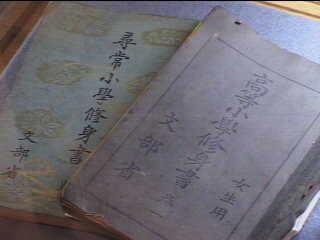 尋常小學修身書
文部省
高等小學修身書 卷一
文部省
女生用